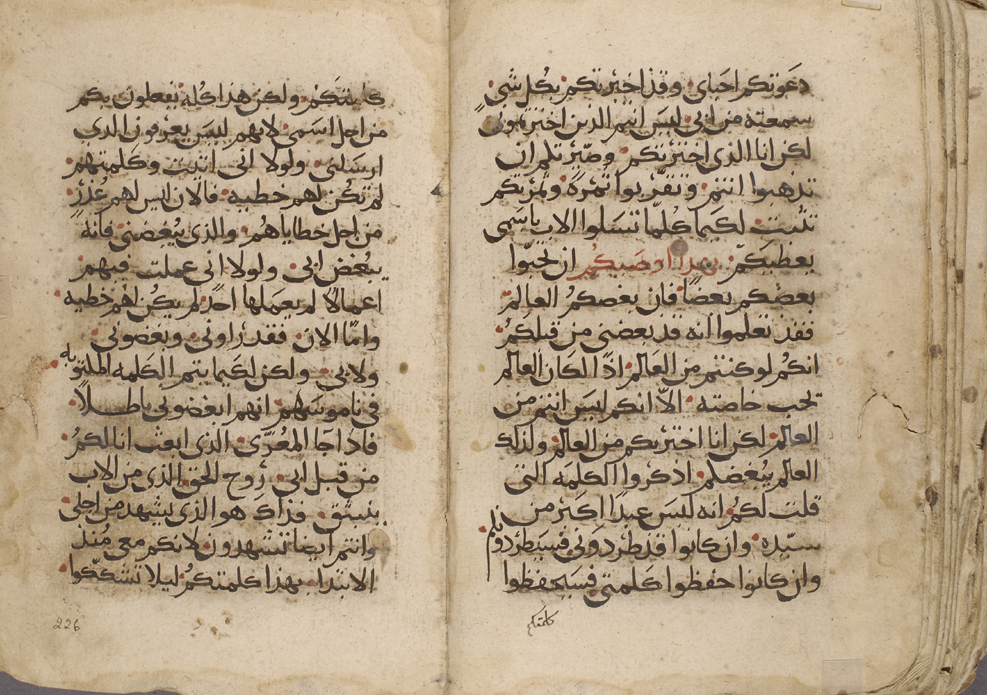 دعوتكم احباى وقد اخبرتكم بكل شى
سمعته من ابى ليس انتم الذين اخترتمونى
لكن انا الذى اخترتكم وصيرتكم ان
تذهبوا انتم وتقربوا ثمرة وثمرتكم
تثبت لكيما كلما تسلوا الاب باسمى
يعطيكم بهذا اوصيكم ان تحبوا
بعضكم بعضا فان بغضكم العالم
فقد تعلموا انه قد بغضنى من قبلكم
انكم لو كنتم من العالم اذا لكان العالم
تحب خاصته الا انكم ليس انتم من
العالم لكن انا اخترتكم من العالم ولذلك
العالم يبغضكم اذكروا الكلمه التى
قلت لكم انه ليس عبدا اكبر من
سيده وان كانوا قد طردونى فسيطردونكم
وان كانوا حفظوا كلمتى فسيحفظوا
كلمتكم
كلمتكم ولكن هذا كله يفعلون بكم
من اجل اسمى لانهم ليس يعرفون الذى
ارسلنى ولولا انى اتيت وكلمتهم
لم تكن لهم خطيه فالان ليس لهم عذر
من اجل خطاياهم والذى يبغضنى فانه
يبغض ابى ولولا انى عملت فيهم
اعمالا لم يعملها احد لم يكن لهم خطيه
واما الان فقد راونى وبغضونى
ولابى ولكن لكيما يتم الكلمه اطلقوا به
فى ناموسهم انهم ابغضونى باطلا
فاذا جا المعزى الذى ابعث انا لكم
من قبل ابى روح الحق الذى من الاب
ينبثق فذاك هو الذى يشهد من اجلى
وانتم ايضا تشهدون لانكم معى منذ
الابتدا بهذا كلمتكم ليلا تشككوا
226